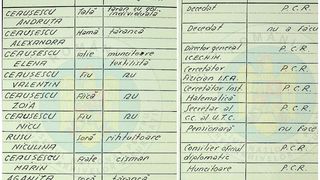 CEAUSESCU ANDRUTA Tată țăran cu gosp. individuală
CEAUSESCU ALEXANDRA Mamă țărancă
CEAUSESCU ELENA soție muncitoare textilistă
CEAUSESCU VALENTIN Fiu nu
CEAUSESCU ZOIA Fiică nu
CEAUSESCU NICU Fiu nu
RUSU NICULINA Soră
CEAUSESCU MARIN Frate cizmar
AGANITA Soră țărancă
Decedat P.C.R.
Decedat nu a făcu
Director general I.C.E.CHIM. P.C.R.
Cercetător fizician I.F.A. P.C.R.
Cercetător Inst. Matematică P.C.R.
Secretar al C.C. al U.T.C. P.C.R.
Pensionară nu face
Consilier oficiul diplomatic P.C.R.
Muncitoare P.C.R.